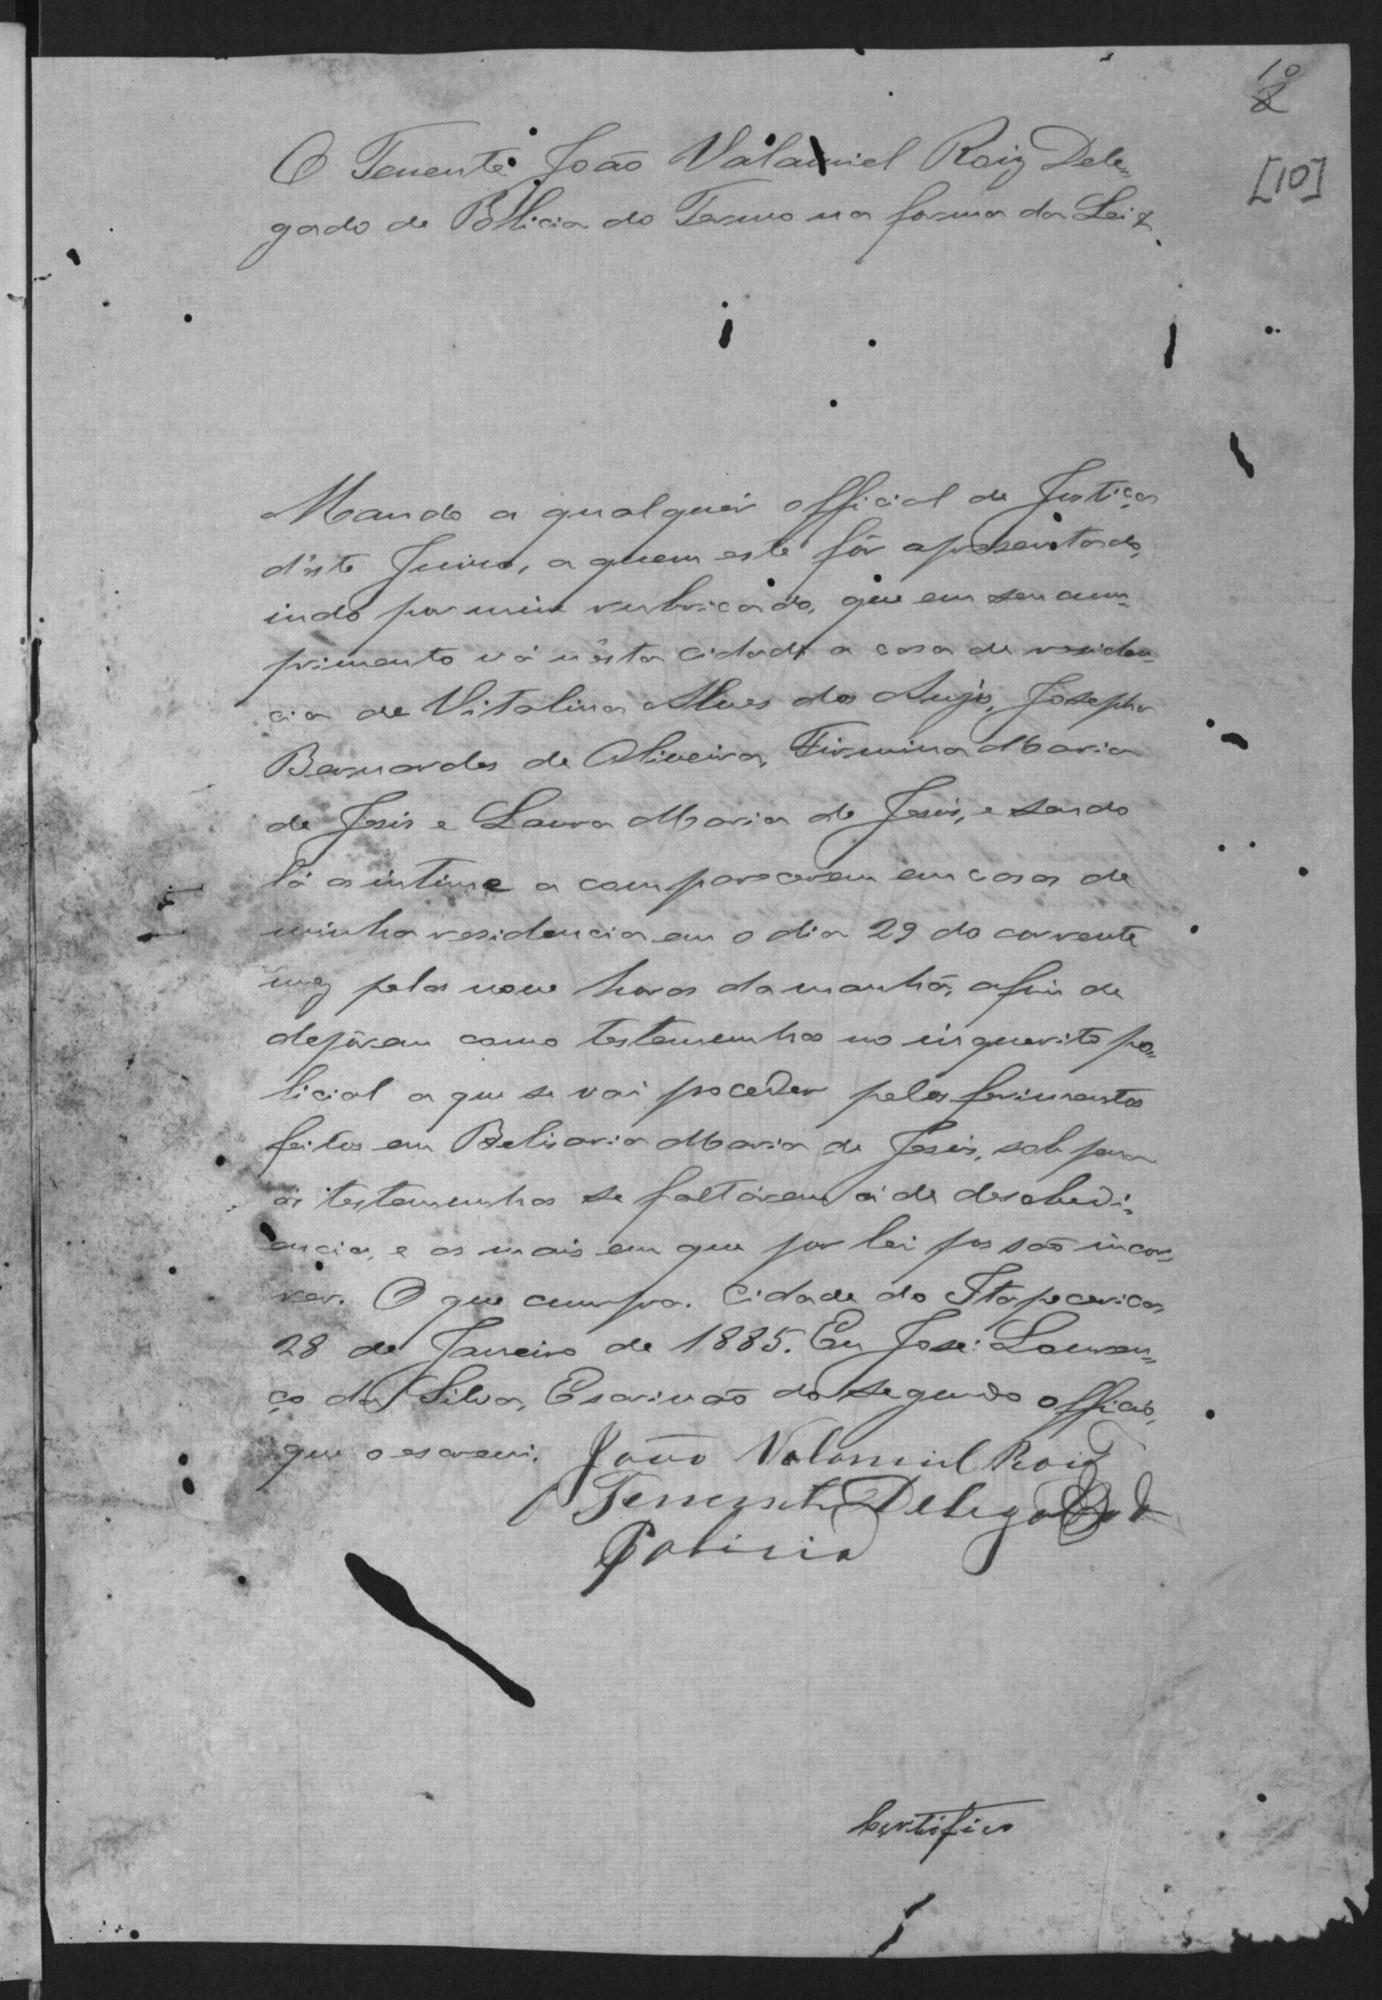 10
8
[10]
O Tenente João Valamiel Roiz Dele-
gado de Policia do Termo na forma da Lei &
Mando a qualquér official de Justiça
d'éste Juiso, a quem este fôr apresentado,
indo por mim rubricado, que em seu cum-
primento vá n'ésta Cidade a casa de residen-
cia de Vitalina Alves dos Anjos, Josepha
Bernardes de Oliveira, Firmina Maria
de Jesus e Laura Maria de Jesus, e sendo
lá as intime a comparecerem em casa de
minha residencia em o dia 29 do corrente
mez pelas nove horas da manhã, afim de
depôrem como testemunhas no inquerito po-
licial a que se vai proceder pelos ferimentos
feitos em Belisaria Maria de Jesus, sob pena
ás testemunhas se faltárem á de desobedi-
encia, e as mais em que por lei possão incor-
rer. O que cumpra. Cidade do Itapecerica
28 de Janeiro de 1885. Eu José Louren-
ço da Silva, Escrivão do segundo officio,
que o escrevi. João Valamiel Roiz
Tenente Delegado de
Policia
Certifico